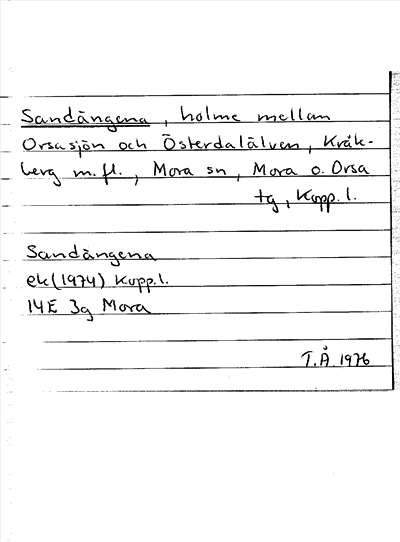 Sandängena, holme mellan
Orsasjön och Österdalälven, Kråk-
berg m.fl., Mora sn, Mora o. Orsa
tg, Kopp. l.
Sandängena
ek (1974) Kopp. l.
14E 3g Mora
T.Å. 1976